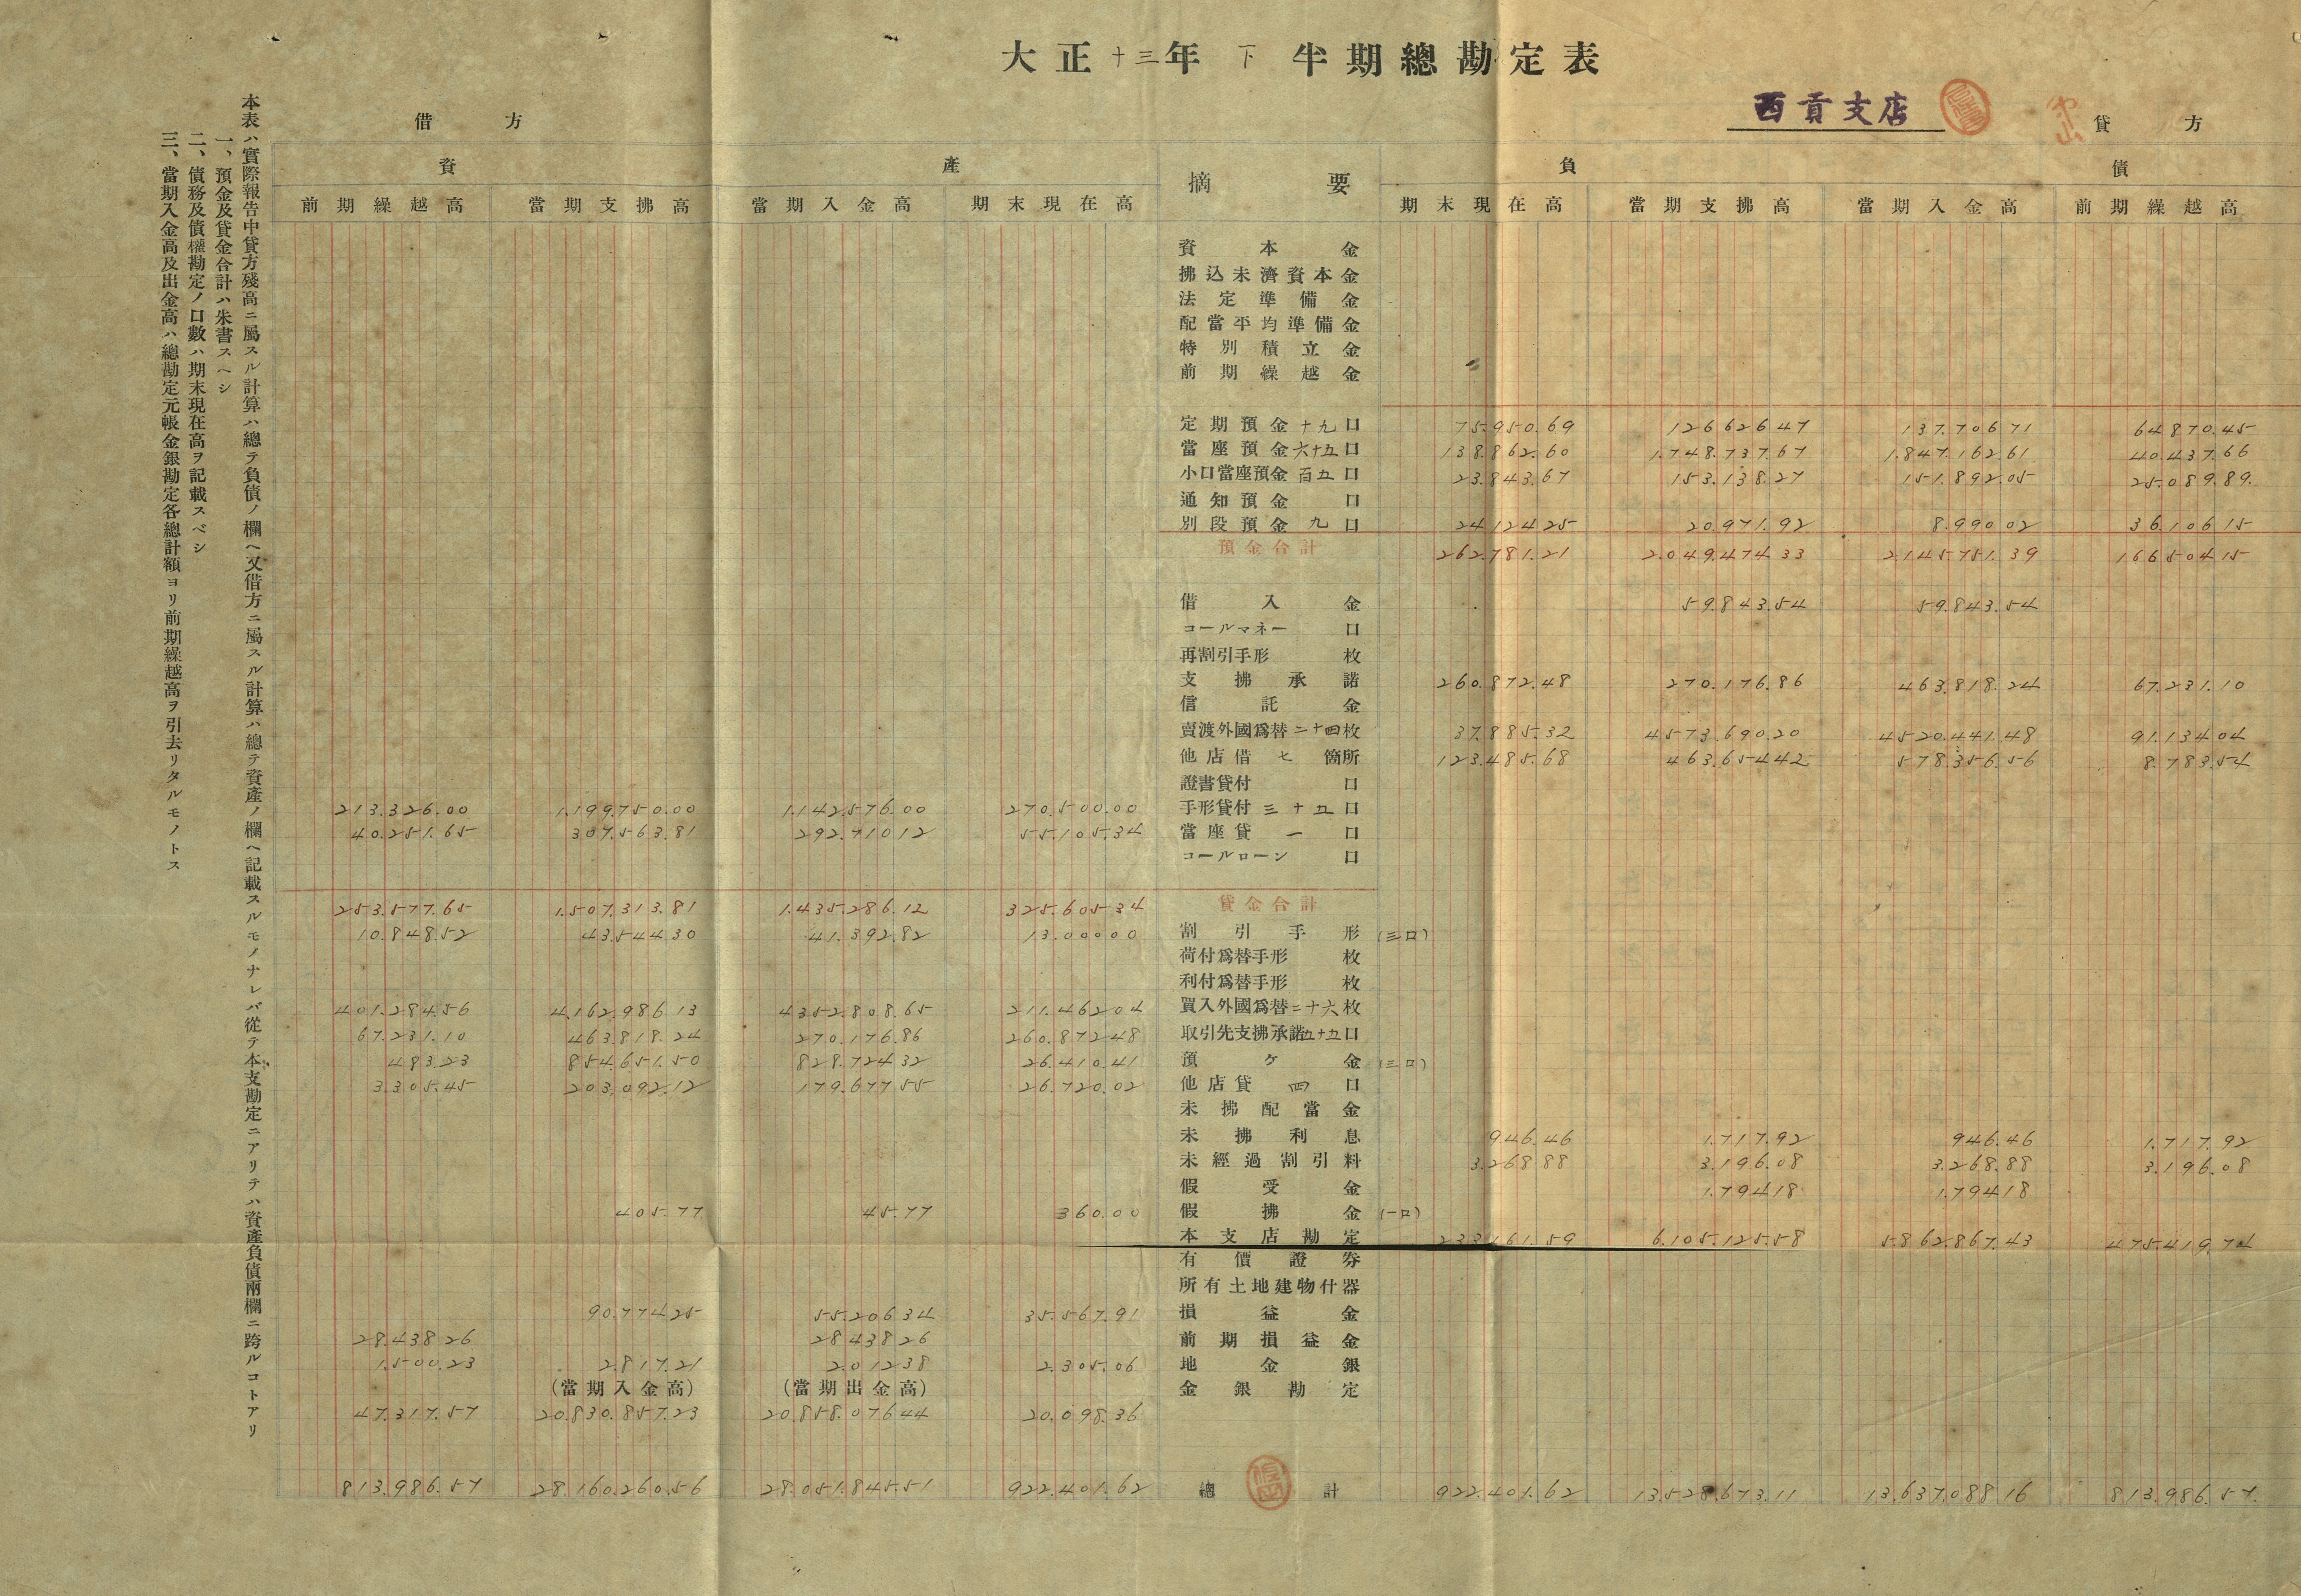 大正十三年下半期總勘定表
西貢支店
借方
貸方
資產
摘要
負債
前期繰越高 當期支拂高 當期入金高 期末現在高 期末現在高 當期支拂高 當期入金高 前期繰越高
資本金
拂込未濟資本金
法定準備金
配當平均準備金
特別積立金
前期繰越金
定期預金十九口 75.950.69 126.626.47 137.706.71 64.870.45
當座預金六十五口 138.862.60 1.748.737.67 1.847.162.61 40.437.66
小口當座預金百五口 23.843.67 153.138.27 151.892.05 25.089.89
通知預金口
別段預金九口 24.124.25 20.971.92 8.990.02 36.106.15
預金合計 262.781.21 2.049.474.33 2.145.751.39 166.504.15
借入金 59.843.54 59.843.54
コールマネー口
再割引手形枚
支拂承諾 260.872.48 270.176.86 463.818.24 67.231.10
信託金
賣渡外國爲替二十四枚 37.885.32 4573.690.20 4520.441.48 91.134.04
他店借七箇所 123.485.68 463.654.42 578.356.56 8.783.54
證書貸付口
213.326.00 1.199.750.00 1.142.576.00 270.500.00 手形貸付三十五口
40.251.65 307.563.81 292.710.12 55.105.34 當座貸一口
コールローン口
253.577.65 1.507.313.81 1.435.286.12 325.605.34 貸金合計
10.848.52 43.544.30 41.392.82 13.000.00 割引手形(三口)
荷付爲替手形枚
利付爲替手形枚
401.284.56 4.162.986.13 4352.808.65 211.462.04 買入外國爲替二十六枚
67.231.10 463.818.24 270.176.86 260.872.48 取引先支拂承諾五十五口
483.23 854.651.50 828.724.32 26.410.41 預ケ金(三口)
3.305.45 203.092.12 179.677.55 26.720.02 他店貸四口
未拂配當金
未拂利息 946.46 1.717.92 946.46 1.717.92
未經過割引料 3.268.88 3.196.08 3.268.88 3.196.08
假受金 1.794.18 1.794.18
405.77 45.77 360.00 假拂金(一口)
本支店勘定 233.161.59 6.105.125.58 5.862.867.43 475.419.74
有價證券
所有土地建物什器
90.774.25 55.206.34 35.567.91 損益金
28.438.26 28.438.26 前期損益金
1.500.23 2.817.21 2.012.38 2.305.06 地金銀
(當期入金高) (當期出金高) 金銀勘定
47.317.57 20.830.857.23 20.858.076.44 20.098.36
813.986.57 28.160.260.56 28.051.845.51 922.401.62 總計 922.401.62 13.528.673.11 13.637.088.16 813.986.57
本表ハ實際報告中貸方殘高ニ屬スル計算ハ總テ負債ノ欄ヘ又借方ニ屬スル計算ハ總テ資產ノ欄ヘ記載スルモノナレバ從テ本支勘定ニアリテハ資產負債兩欄ニ跨ルコトアリ
一、預金及貸金合計ハ朱書スヘシ
二、債務及債權勘定ノ口數ハ期末現在高ヲ記載スベシ
三、當期入金高及出金高ハ總勘定元帳金銀勘定各總計額ヨリ前期繰越高ヲ引去リタルモノトス